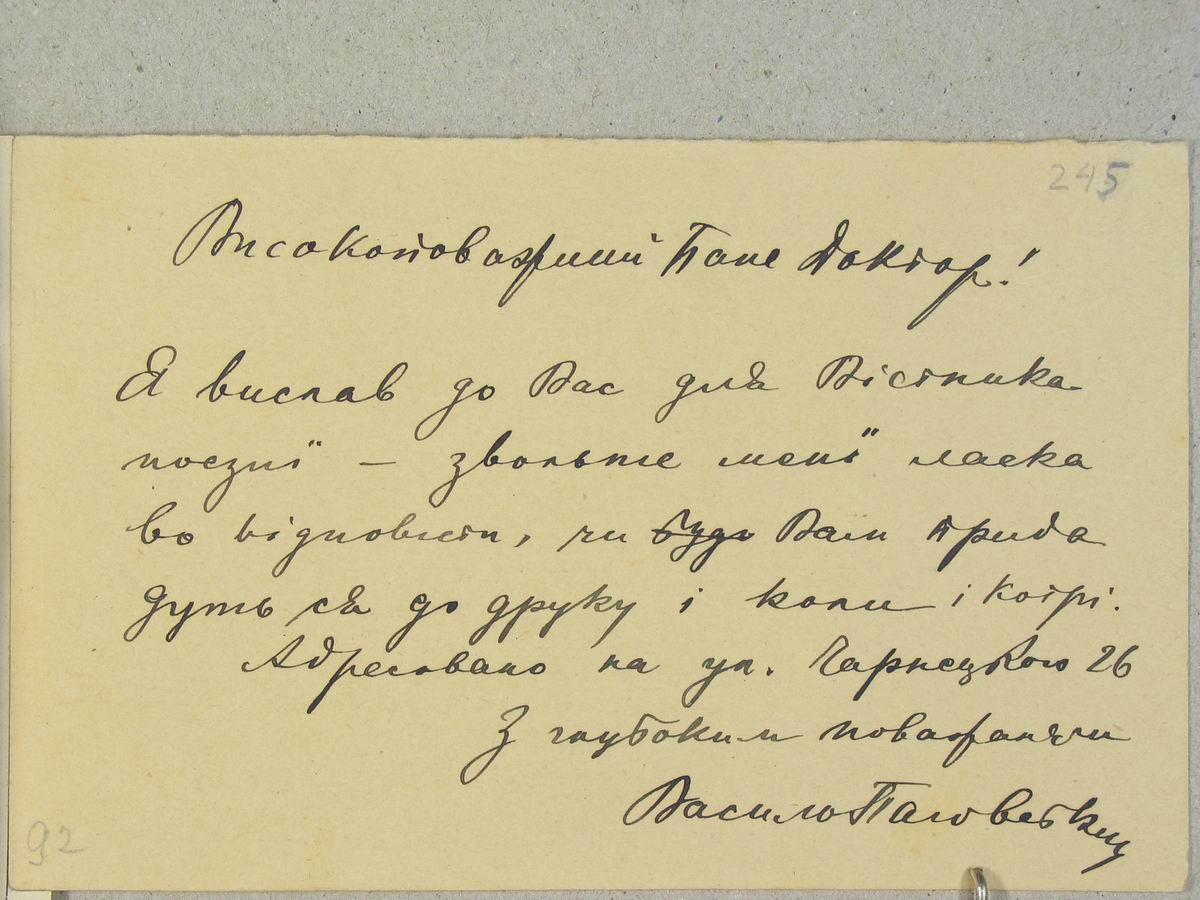 245
Високоповажний Пане Доктор!
Я вислав до Вас для Вістника
поезиї — звольте менї ласка
во відповісти, чи будо Вам прида
дуть ся до друку і коли і котрі.
Адресовано на ул. Чарнєцкого 26
З глубоким поважанєм
Василь Пачовський
92